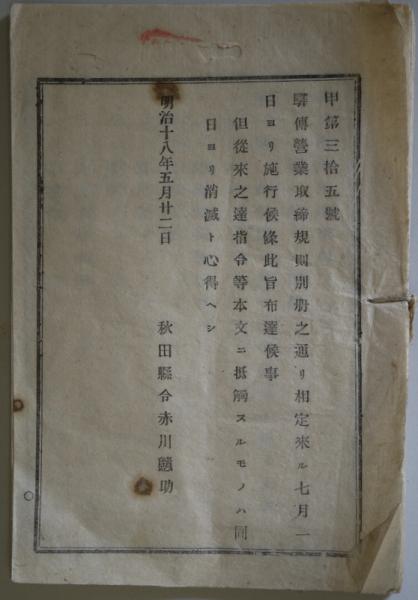 甲第三拾五號
驛傳營業取締規則別冊之通リ相定來ル七月一
日ヨリ施行候條此旨布達候事
但從來之達指令等本文ニ抵觸スルモノハ同
日ヨリ消滅ト心得ヘシ
明治十八年五月廿二日 秋田縣令赤川戇助